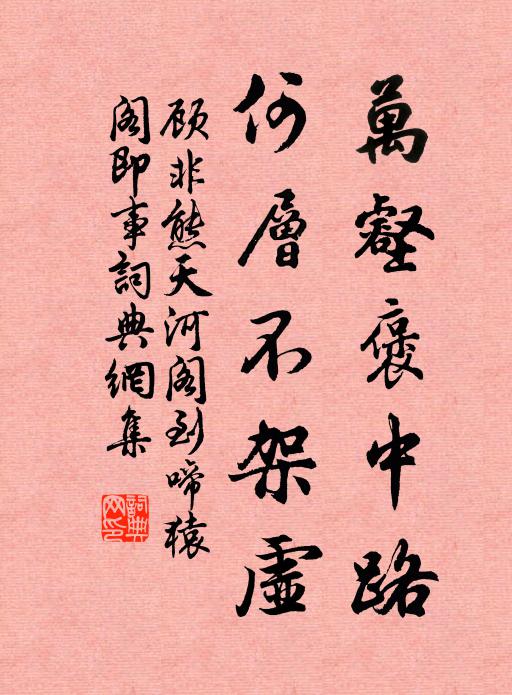 萬壑褒中路
何層不架虛
顧非熊天河閣到啼猿
閣即事詞典網集
詞典
网印